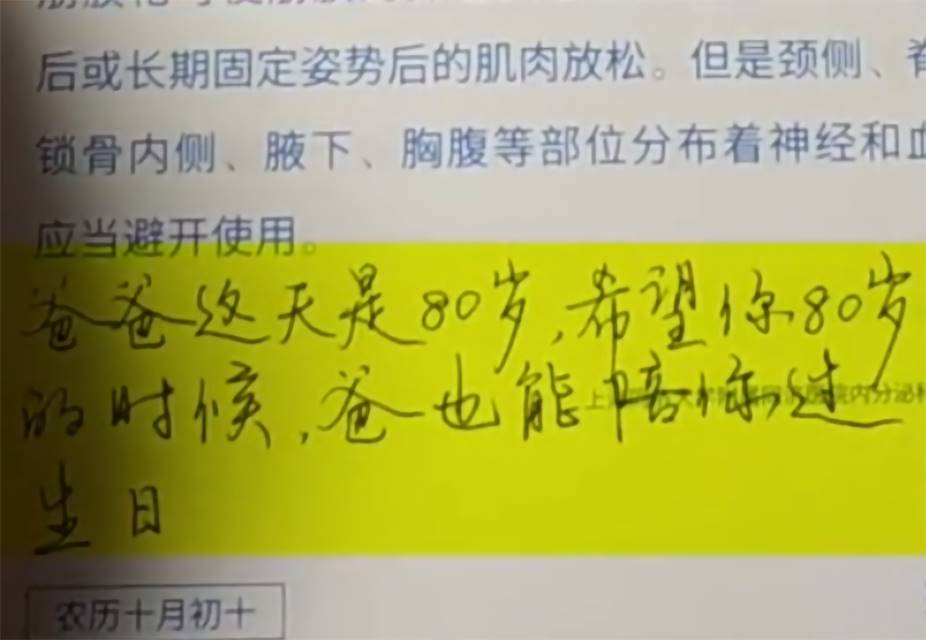 后或长期固定姿势后的肌肉放松。但是颈侧、脊
锁骨内侧、腋下、胸腹等部位分布着神经和血
应当避开使用。
爸爸这天是80岁,希望你80岁
的时候,爸也能陪你过
内分泌科
生日
农历十月初十